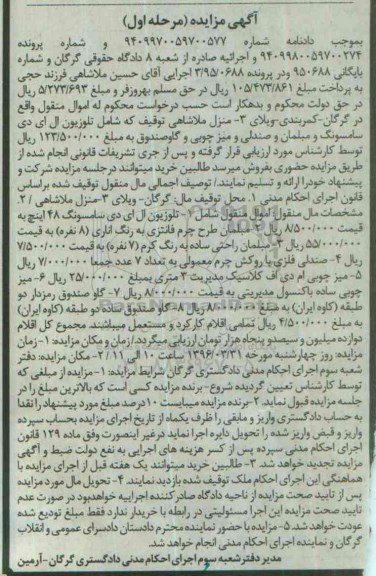 آگهی مزایده (مرحله اول)
بموجب دادنامه شماره ۹۴۰۹۹۷۰۰۵۹۷۰۰۵۷۷ و شماره پرونده
۹۴۰۹۹۸۰۰۵۹۷۰۰۲۷۴ و اجرائیه صادره از شعبه ۸ دادگاه حقوقی گرگان و شماره
بایگانی ۹۵۰۶۸۸ ودر پرونده ۳/۹۵/۰۶۸۸ اجرایی آقای حسین ملاشاهی فرزند حجی
به پرداخت مبلغ ۱۰۵/۴۷۳/۸۶۱ ریال در حق مسلم بهروزفر و مبلغ ۵/۲۷۳/۶۹۳ ریال
در حق دولت محکوم و بدهکار است حسب درخواست محکوم له اموال منقول واقع
در گرگان-کمربندی-ویلای ۳- منزل ملاشاهی توقیف که شامل تلوزیون ال ای دی
سامسونگ و مبلمان و صندلی و میز چوبی و گاوصندوق به مبلغ ۱۲۳/۵۰۰/۰۰۰ ریال
توسط کارشناس مورد ارزیابی قرار گرفته و پس از جری تشریفات قانونی انجام شده از
طریق مزایده حضوری بفروش میرسد طالبین خرید میتوانند درجلسه مزایده شرکت و
پیشنهاد خودرا ارائه و تسلیم نمایند./ توصیف اجمالی مال منقول توقیف شده براساس
قانون اجرای احکام مدنی ۱. محل توقیف مال: گرگان- ویلای ۳-منزل ملاشاهی / ۲.
مشخصات مال منقول: اموال منقول شامل ۱- تلوزیون ال ای دی سامسونگ ۴۸ اینچ به
قیمت ۸/۵۰۰/۰۰۰ ریال ۲- مبلمان طرح چرم فانتزی به رنگ اناری (۸ نفره) به قیمت
۵۵/۰۰۰/۰۰۰ ریال ۳- مبلمان راحتی ساده به رنگ کرم (۷ نفره) به قیمت ۷/۵۰۰/۰۰۰
ریال ۴- صندلی فلزی با روکش چرم معمولی به تعداد ۷ عدد جمعا ۷/۰۰۰/۰۰۰ ریال
۵- میز چوبی ام دی اف کلاسیک مدیریت ۳ متری بمبلغ ۲۵/۰۰۰/۰۰۰ ریال ۶- میز
چوبی ساده باکنسول مدیریتی به قیمت ۸/۰۰۰/۰۰۰ ریال ۷- گاو صندوق رمزدار دو
طبقه (کاوه ایران) به مبلغ ۸/۰۰۰/۰۰۰ ریال ۸- گاو صندوق ساده دو طبقه (کاوه ایران)
به مبلغ ۴/۵۰۰/۰۰۰ ریال تمامی اقلام کارکرد و مستعمل میباشند. مجموع کل اقلام
دوازده میلیون و سیصدو پنجاه هزار تومان ارزیابی میگردد./زمان و مکان مزایده: ۱- زمان
مزایده: روز چهارشنبه مورخه ۱۳۹۶/۰۳/۳۱ ساعت ۱۰ الی ۱۱ /۲- مکان مزایده: دفتر
شعبه سوم اجرای احکام مدنی دادگستری گرگان شرایط مزایده: ۱- مزایده از مبلغی که
توسط کارشناس تعیین گردیده شروع- برنده مزایده کسی است که بالاترین مبلغ را در
جلسه مزایده قبول نماید. ۲-برنده مزایده میبایست ۱۰درصد مبلغ مورد پیشنهاد را نقدا
به حساب دادگستری واریز و مابقی را ظرف یکماه از تاریخ اجرای مزایده بحساب سپرده
واریز و قبض واریز شده را تحویل دایره اجرا نماید درغیر اینصورت وفق ماده ۱۲۹ قانون
اجرای احکام مدنی سپرده پس از کسر هزینه های اجرایی به نفع دولت ضبط و آگهی
مزایده تجدید خواهد شد. ۳- طالبین خرید میتوانند یک هفته قبل از اجرای مزایده با
هماهنگی این اجرای احکام ملک توقیف شده بازدید نمایند. ۴- تحویل مال مورد مزایده
پس از تایید صحت مزایده از ناحیه دادگاه صادرکننده اجراییه خواهدبود در صورت عدم
تایید صحت مزایده این اجرا مسئولیتی در رابطه با خریدار ندارد فقط مبلغ تودیع شده
عودت خواهد شد. ۵- مزایده با حضور نماینده محترم دادستان دادسرای عمومی و انقلاب
گرگان و نماینده اجرای احکام مدنی انجام خواهد شد.
مدیر دفتر شعبه سوم اجرای احکام مدنی دادگستری گرگان-آرمین